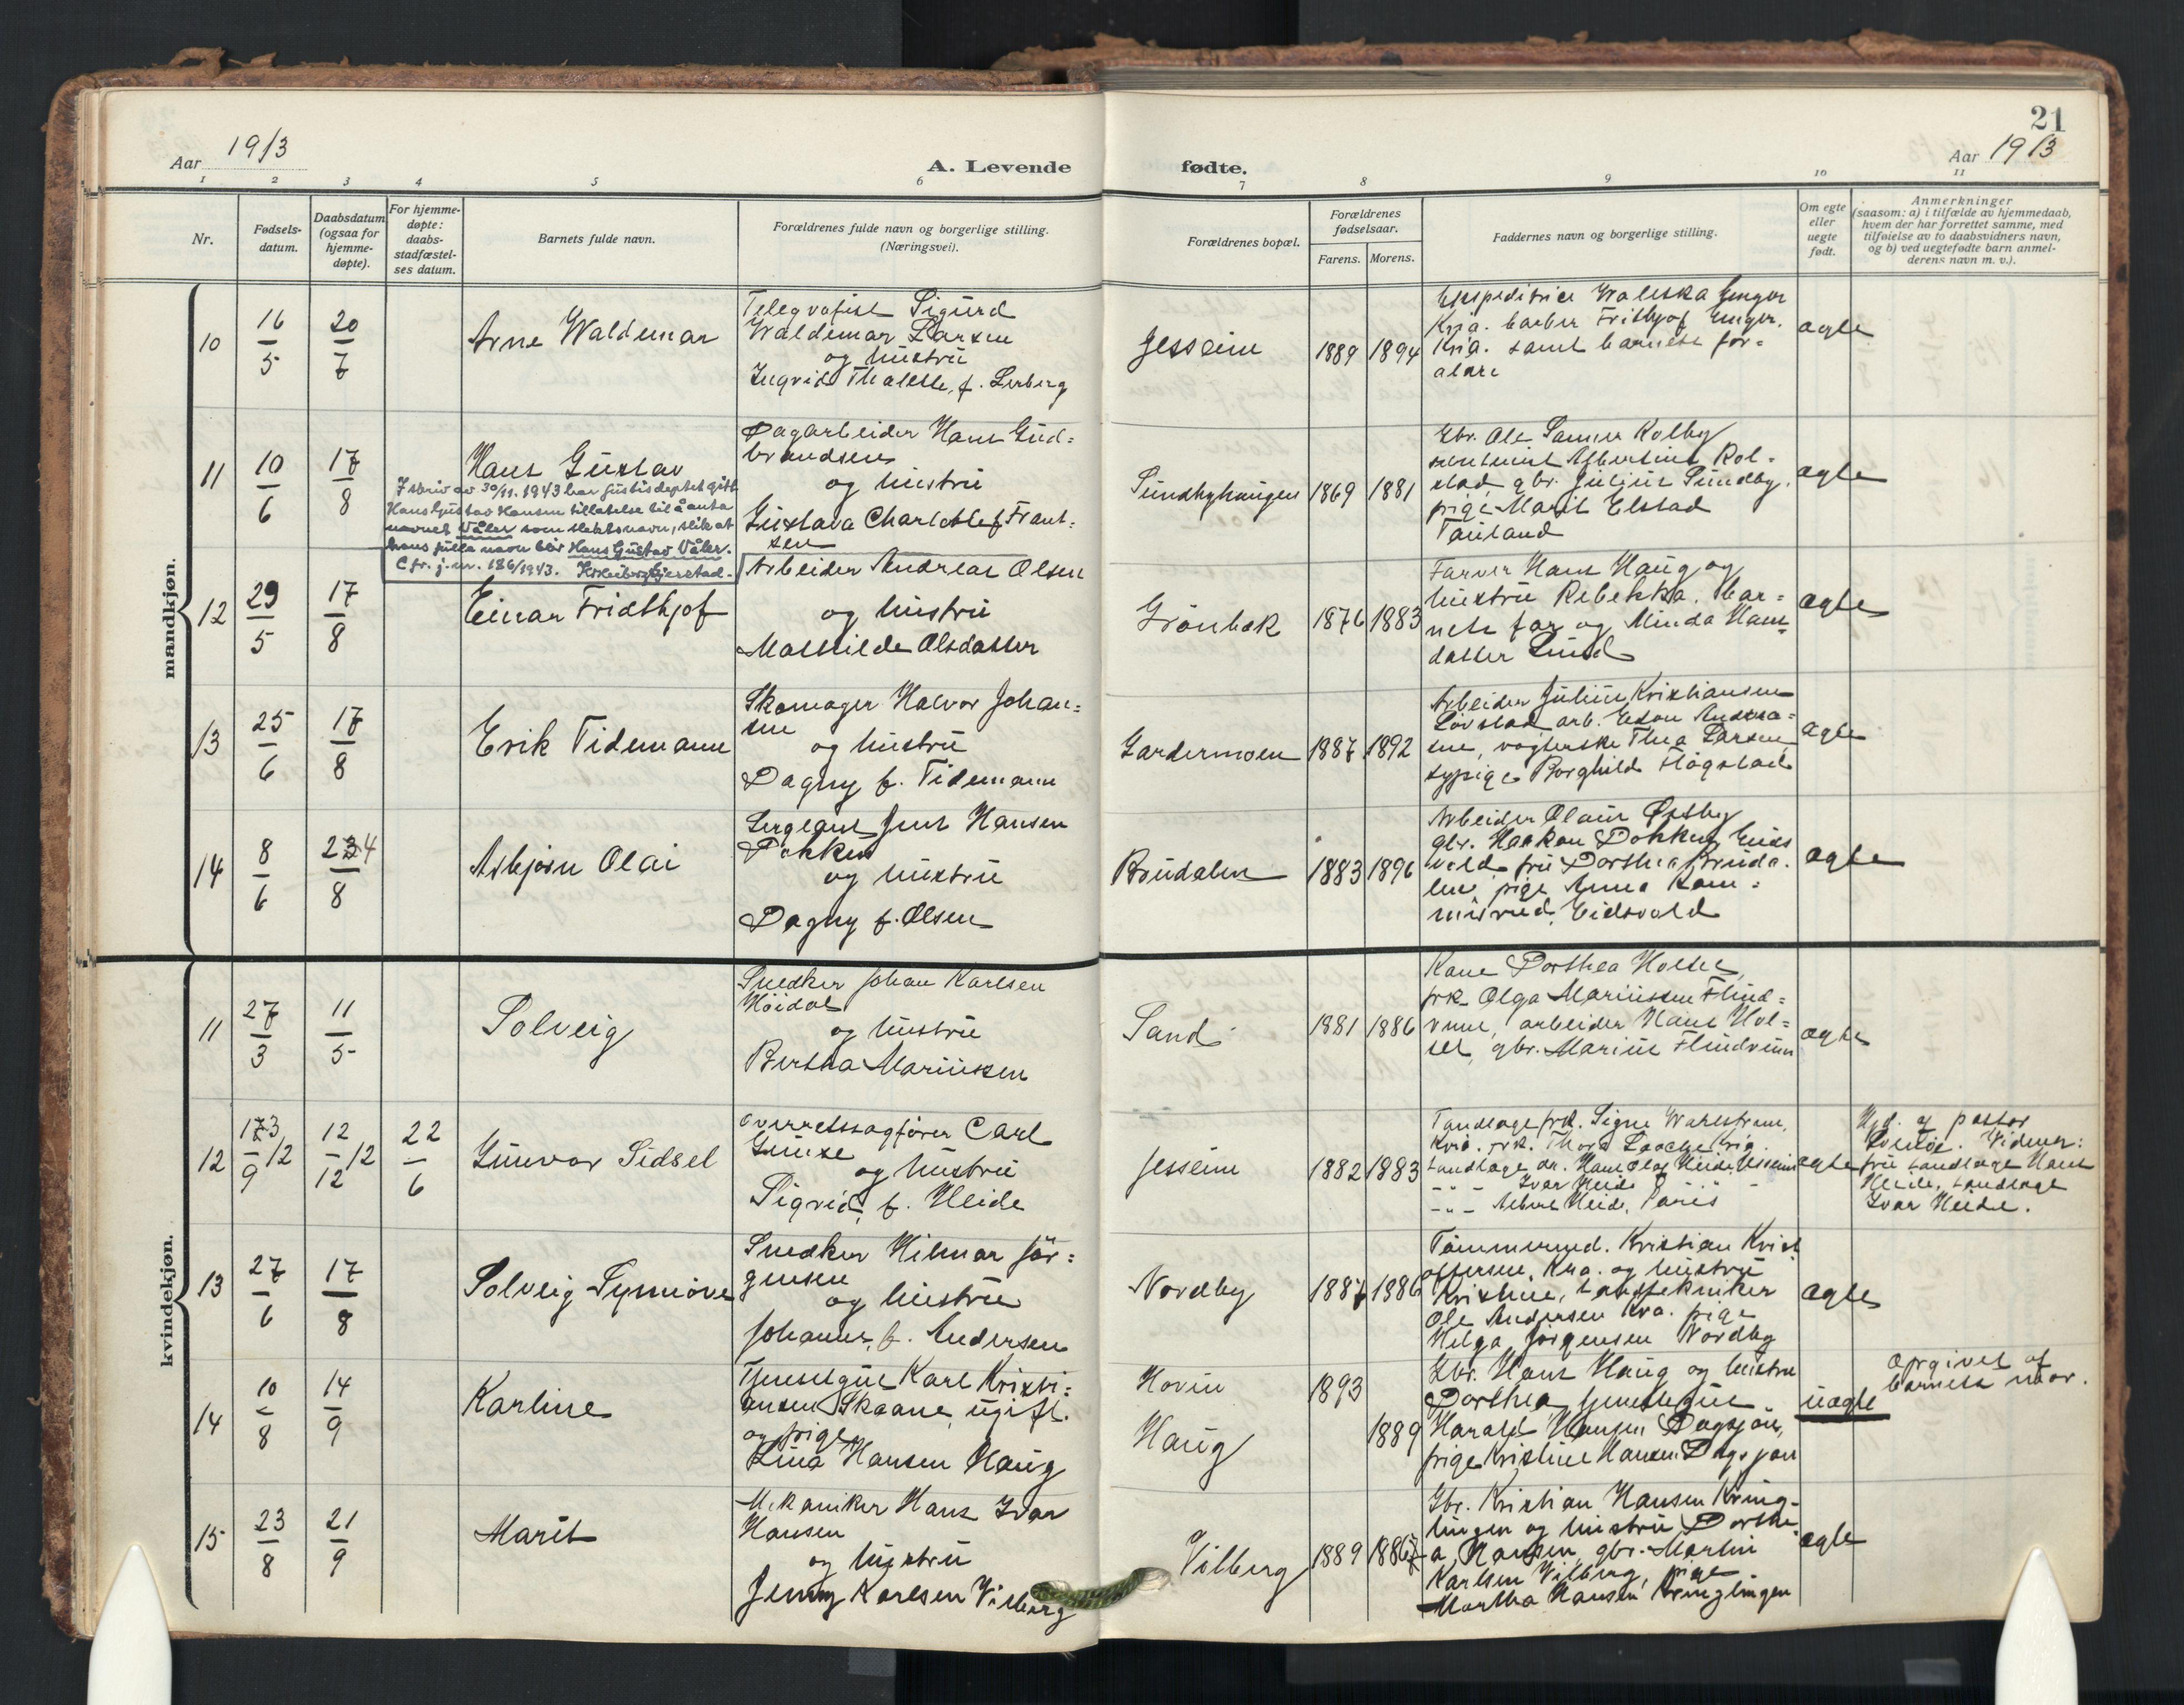 21
Aar 1913
A. Levende
fødte.
Aar 1913
1 2 3 4 5 6 7 8 9 10 11
Nr.
Fødsels-
datum.
Daabsdatum
(ogsaa for
hjemme-
døpte).
For hjemme-
døpte:
daabs-
stadfæstel-
ses datum.
Barnets fulde navn.
Forældrenes fulde navn og borgerlige stilling.
(Næringsvei).
Forældrenes bopæl.
Forældrenes
fødselsaar.
Farens. Morens.
Faddernes navn og borgerlige stilling.
Om egte
eller
uegte
født.
Anmerkninger
(saasom: a) i tilfælde av hjemmedaab,
hvem der har forrettet samme, med
tilføielse av to daabsvidners navn,
og b) ved uegtefødte barn anmel-
derens navn m. v.).
mandkjøn.
10
16/5
20/7
Arne Waldemar
Telegrafist Sigurd
Waldemar Larsen
og hustru
Ingvid Thalette, f. Lerberg
Jesseim
1889 1894
Ekspeditrice Waleska Enger
Kria. barber Frithjof Enger.
Kria. samt barnets for=
ældre
ægte
11
10/6
17/8
Hans Gustav
I skriv av 30/11.1943 har justisdeptet gitt
Hans Gustav Hansen tillatelse til å anta
navnet Våler som slektsnavn, slik at
hans fulle navn blir Hans Gustav Våler.
Cfr. j.nr. 186/1943.
Dagarbeider Hans Gud=
brandsen
og hustru
Gustava Charlotte f. Frant=
sen
Sundbyhaugen
1869 1881
Gbr. Ole Sanner Kolby
Albertine Rol=
stad, gbr. Julius Sundby,
pige Marit Elstad
Tauland
ægte
12
29/5
17/8
Einar Fridthjof
Arbeider Andreas Olsen
og hustru
Mathilde Olsdatter
Grönbæk
1876 1883
Farver Hans Haug og
hustru Rebekka. Bar=
nets far og Minda Hans
datter Lund
ægte
13
25/6
17/8
Erik Tidemann
Skomager Halvor Johan=
sen
og hustru
Dagny f. Tidemann
Gardermoen
1887 1892
Arbeider Julius Kristiansen
Lövstad arb. Edon Andrea=
sen, vagterske Thea Larsen,
sypige Borghild Flögstad
ægte
14
8/6
234/8
Asbjørn Olai
Sergeant Jens Hansen
Dokken
og hustru
Dagny f. Olsen
Brudalen
1883 1896
Arbeider Olaus Østby
gbr. Haakon Dokken, Eids
vold, fru Dorthea Bruda=
len, pige Anna Kom=
misrud, Eidsvold
ægte
kvindekjøn.
11
27/3
11/5
Solveig
Snedker Johan Karlsen
Höidal
og hustru
Bertha Mariussen
Sand
1881 1886
Kone Dorthea Holter,
frk Olga Mariussen Flind=
runn, arbeider Hans Hol=
ter, gbr. Marius Flindrunn
ægte
12
173/9 12
12/12 12
22/6
Gunvor Sidsel
Overretssagfører Carl
Gruse
og hustru
Sigrid, f. Heide
Jesseim
1882 1883
Tandlæge frk. Signe Wahlstrøm,
Kria. frk. Thora Laache, Kria.
tandlæge dr. Hans Olaf Heide, Jesseim
-"- Ivar Heide
-"- Albert Heide, Paris
ægte
Hjd. af pastor
Vidner:
fru tandlæge Hans
Heide, tandlæge
Ivar Heide.
13
27/6
17/8
Solveig Synnöve
Snedker Hilmar Jör=
gensen
og hustru
Johanne, f. Andersen
Nordby
1887 1886
Tömmermd. Kristian Krist
offersen, Kra. og hustru
Kristine, tandtekniker
Ole Andersen Kra. pige
Helga Jörgensen Nordby
ægte
14
10/8
14/9
Karline
Tjenestegut Karl Kristi=
ansen Skaane, ugift.
og pige
Lina Hansen Haug
Hovin
1893
Haug
1889
Gbr. Hans Haug og hustru
Dorthea tjenestegut
Harald Hansen Dagsjön,
pige Kristine Hansen Dagsjön
uægte
Opgivet af
barnets mor.
15
23/8
21/9
Marit
Mekaniker Hans Ivar
Hansen
og hustru
Jenny Karlsen Vilberg
Vilberg
1889 1887
Gbr. Kristian Hansen Kring=
lingen og hustru Dorthe
a Hansen, gbr. Martin
Karlsen Vilberg, pige
Martha Hansen Kringlingen
ægte